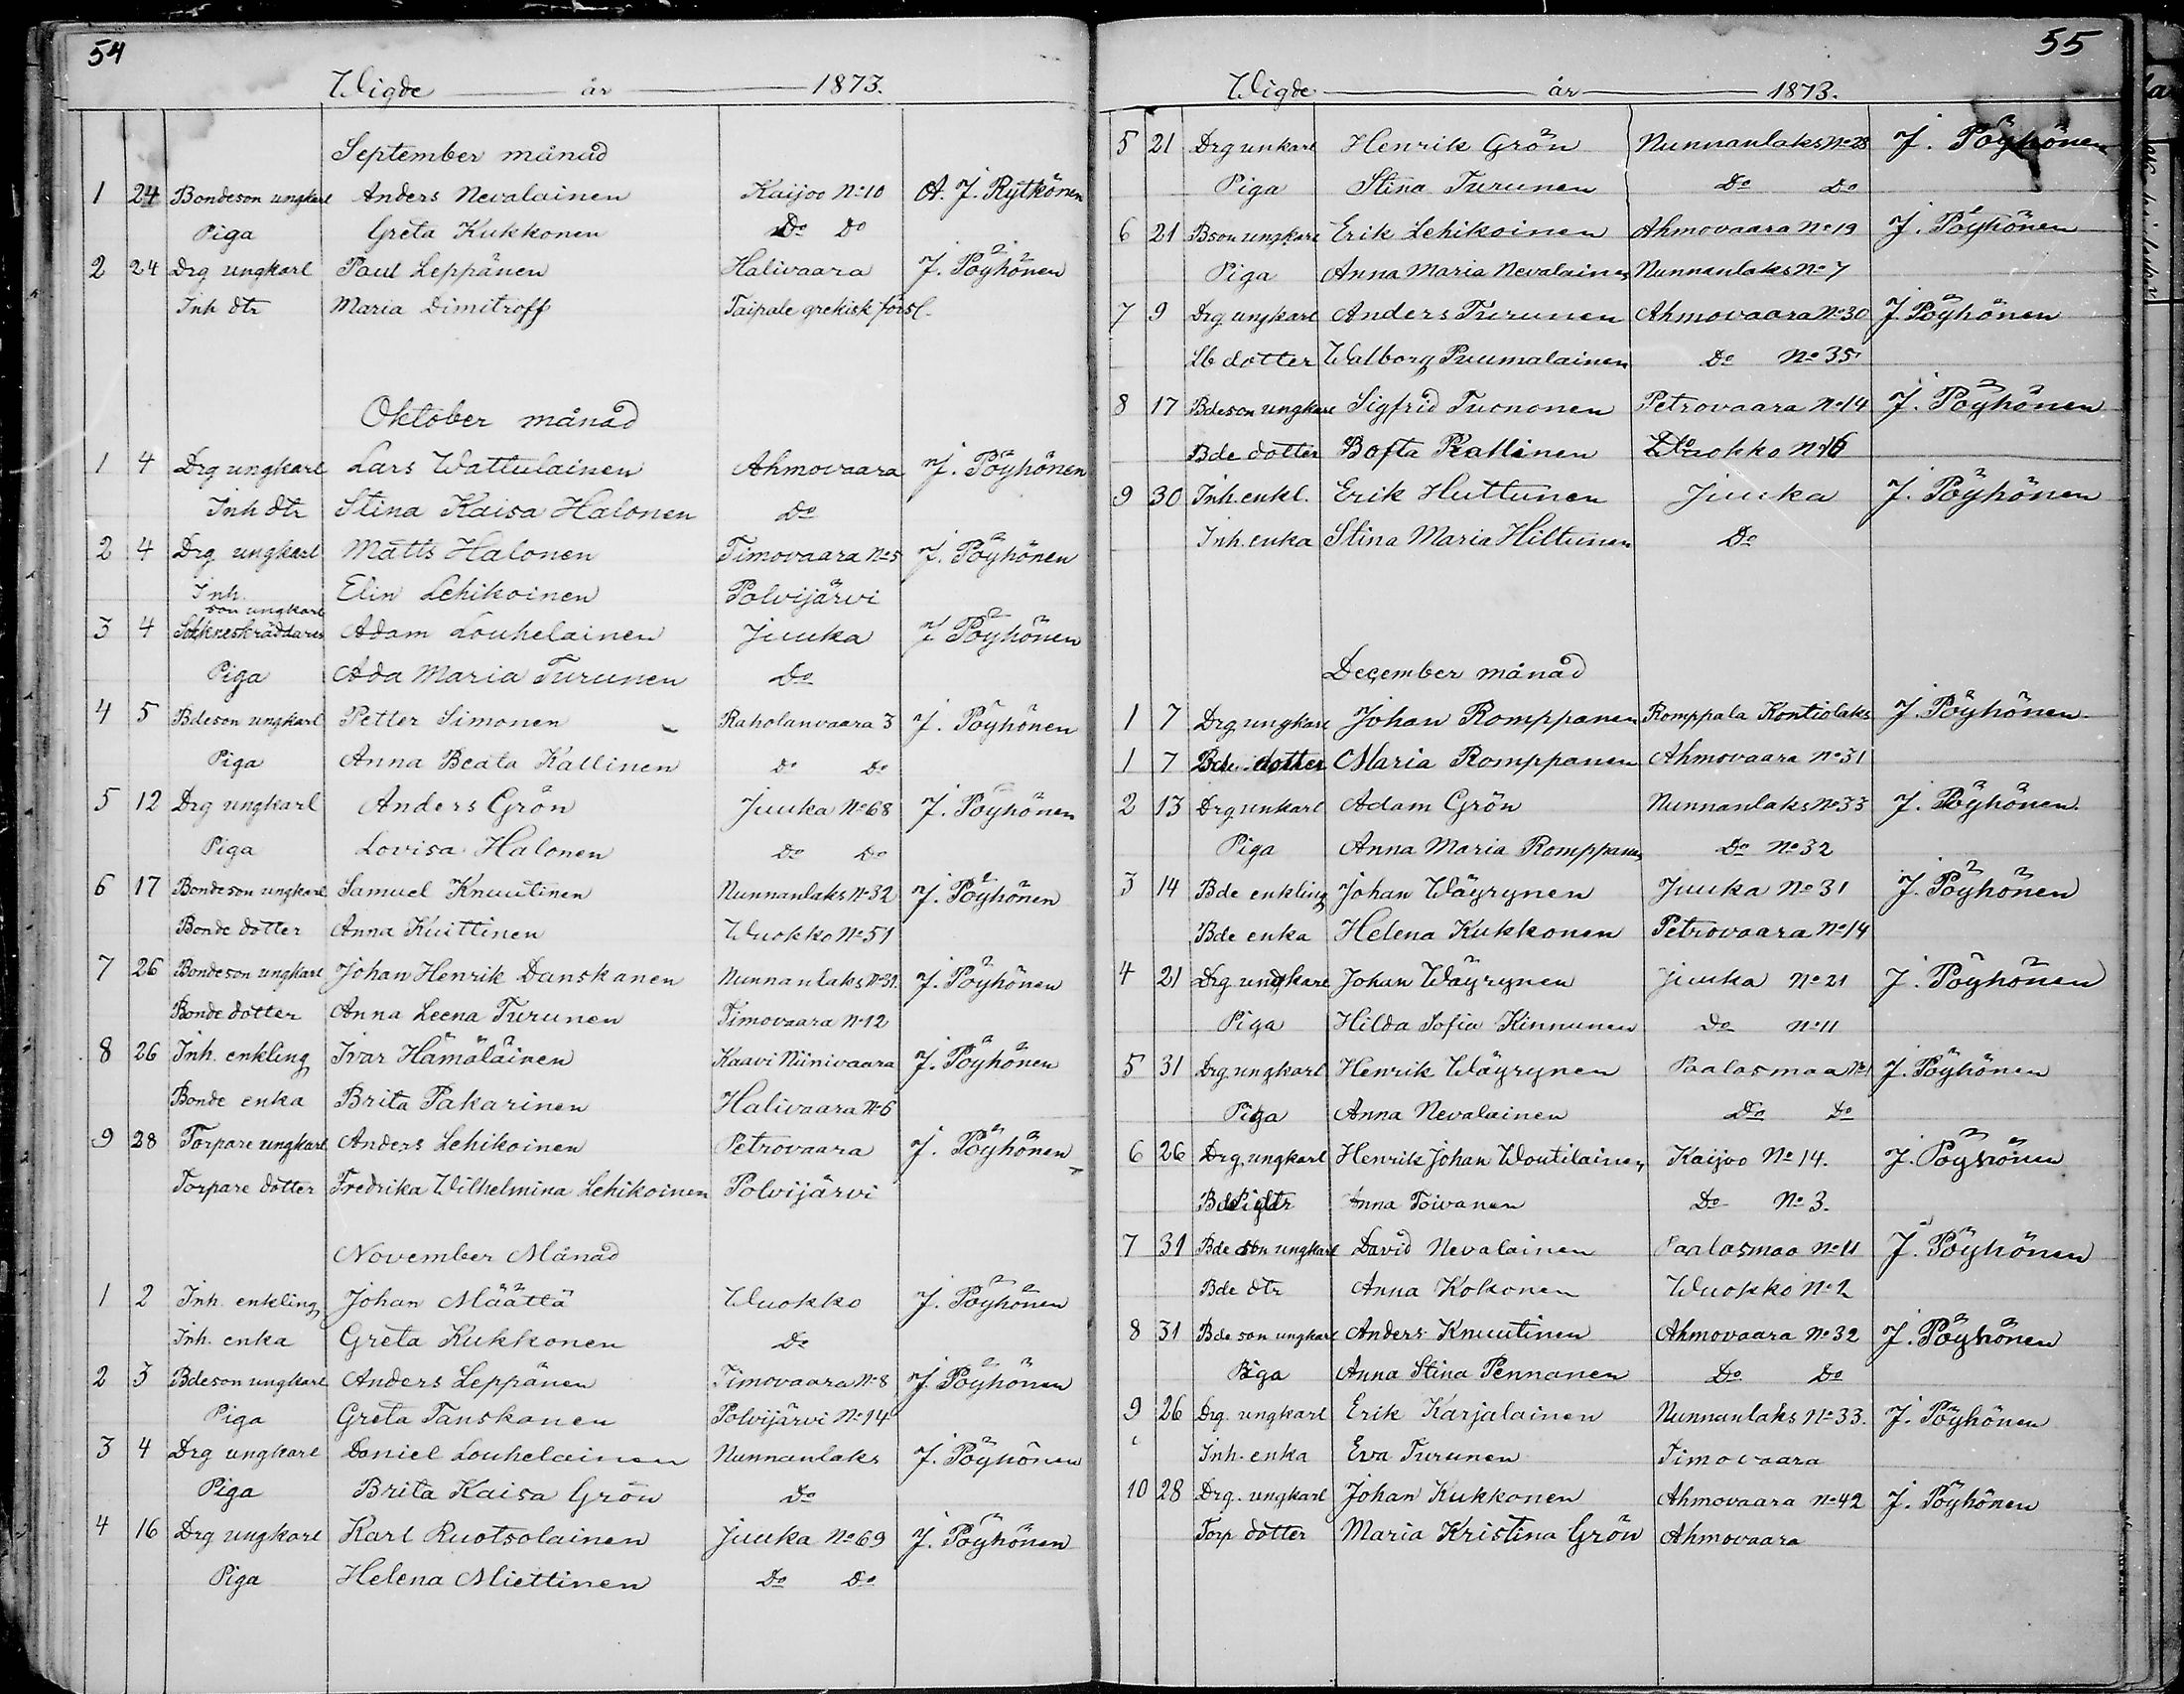 54
Wigde år 1873.
September månad
1 24 Bondeson ungkarl Anders Nevalainen Kaijoo No 10 A. J. Rytkönen
Piga Greta Kukkonen Do Do
2 24 Drg ungkarl Paul Leppänen Halivaara J. Pöyhönen
Inh dtr Maria Dimitroff Taipale grekisk förs!.
Oktober månad
1 4 Drg ungkarl Lars Wattulainen Ahmovaara J. Pöyhönen
Inh dtr Stina Kaisa Halonen Do
2 4 Drg ungkarl Matts Halonen Timovaara No 5 J. Pöyhönen
Inh. Elin Lehikoinen Polvijärvi
son ungkarl
3 4 Sokneskräddares Adam Louhelainen Juuka J. Pöyhönen
Piga Ada Maria Turunen Do
4 5 Bdeson ungkarl Petter Simonen Raholanvaara 3 J. Pöyhönen
Piga Anna Beata Kallinen Do Do
5 12 Drg ungkarl Anders Grön Juuka No 68 J. Pöyhönen
Piga Lovisa Halonen Do Do
6 17 Bondeson ungkarl Samuel Knuutinen Nunnanlaks No 32 J. Pöyhönen
Bonde dotter Anna Kuittinen Wuokko No 51
7 26 Bondeson ungkarl Johan Henrik Danskanen Nunnanlaks No 31. J. Pöyhönen
Bonde dotter Anna Leena Turunen Timovaara No 12
8 26 Inh. enkling Ivar Hämäläinen Kaavi Niinivaara J. Pöyhönen
Bonde enka Brita Pakarinen Halivaara No 6
9 28 Torpare ungkarl Anders Lehikoinen Petrovaara J. Pöyhönen
Torpare dotter Fredrika Wilhelmina Lehikoinen Polvijärvi
November Månad
1 2 Inh. enkling Johan Määttä Wuokko J. Pöyhönen
Inh. enka Greta Kukkonen Do
2 3 Bdeson ungkarl Anders Leppänen Timovaara No 8 J. Pöyhönen
Piga Greta Tanskanen Polvijärvi No 14
3 4 Drg ungkarl Daniel Louhelainen Nunnanlaks J. Pöyhönen
Piga Brita Kaisa Grön Do
4 16 Drg ungkarl Karl Ruotsolainen Juuka No 69 J. Pöyhönen
Piga Helena Miettinen Do Do
55
Wigde år 1873.
5 21 Drg unkarl Henrik Grön Nunnanlaks No 28 J. Pöyhönen
Piga Stina Turunen Do Do
6 21 Bson ungkarl Erik Lehikoinen Ahmovaara No 19 J. Pöyhönen
Piga Anna Maria Nevalainen Nunnanlaks No 7
7 9 Drg. ungkarl Anders Turunen Ahmovaara No 30 J. Pöyhönen
Lb dotter Walborg Puumalainen Do No 35
8 17 Bdeson ungkarl Sigfrid Tuononen Petrovaara No 14 J. Pöyhönen
Bde dotter Bofta Rallinen Wuokko No 16
9 30 Inh. enkl. Erik Huttunen Juuka J. Pöyhönen
Inh. enka Stina Maria Hiltunen Do
December månad
1 7 Drg ungkarl Johan Romppanen Romppala Kontiolaks J. Pöyhönen
1 7 Bde dotter Maria Romppanen Ahmovaara No 31
2 13 Drg. unkarl Adam Grön Nunnanlaks No 33 J. Pöyhönen.
Piga Anna Maria Romppanen Do No 32
3 14 Bde enkling Johan Wäyrynen Juuka No 31 J. Pöyhönen
Bde enka Helena Kukkonen Petrovaara No 14
4 21 Drg. ungkarl Johan Wäyrynen Juuka No 21 J. Pöyhönen
Piga Hilda Sofia Kinnunen Do No 11
5 31 Drg. ungkarl Henrik Wäyrynen Paalasmaa No 1 J. Pöyhönen
Piga Anna Nevalainen Do Do
6 26 Drg. ungkarl Henrik Johan Woutilainen Kaijoo No 14. J. Pöyhönen
Bde dtr Anna Toivanen Do No 3.
7 31 Bde son ungkarl David Nevalainen Paalasmaa No 11 J. Pöyhönen
Bde dtr Anna Kokonen Wuokko No 2
8 31 Bde son ungkarl Anders Knuutinen Ahmovaara No 32 J. Pöyhönen
Piga Anna Stina Pennanen Do Do
9 26 Drg. ungkarl Erik Karjalainen Nunnanlaks No 33. J. Pöyhönen
Inh. enka Eva Turunen Timovaara
10 28 Drg. ungkarl Johan Kukkonen Ahmovaara No 42 J. Pöyhönen
Torp dotter Maria Kristina Grön Ahmovaara